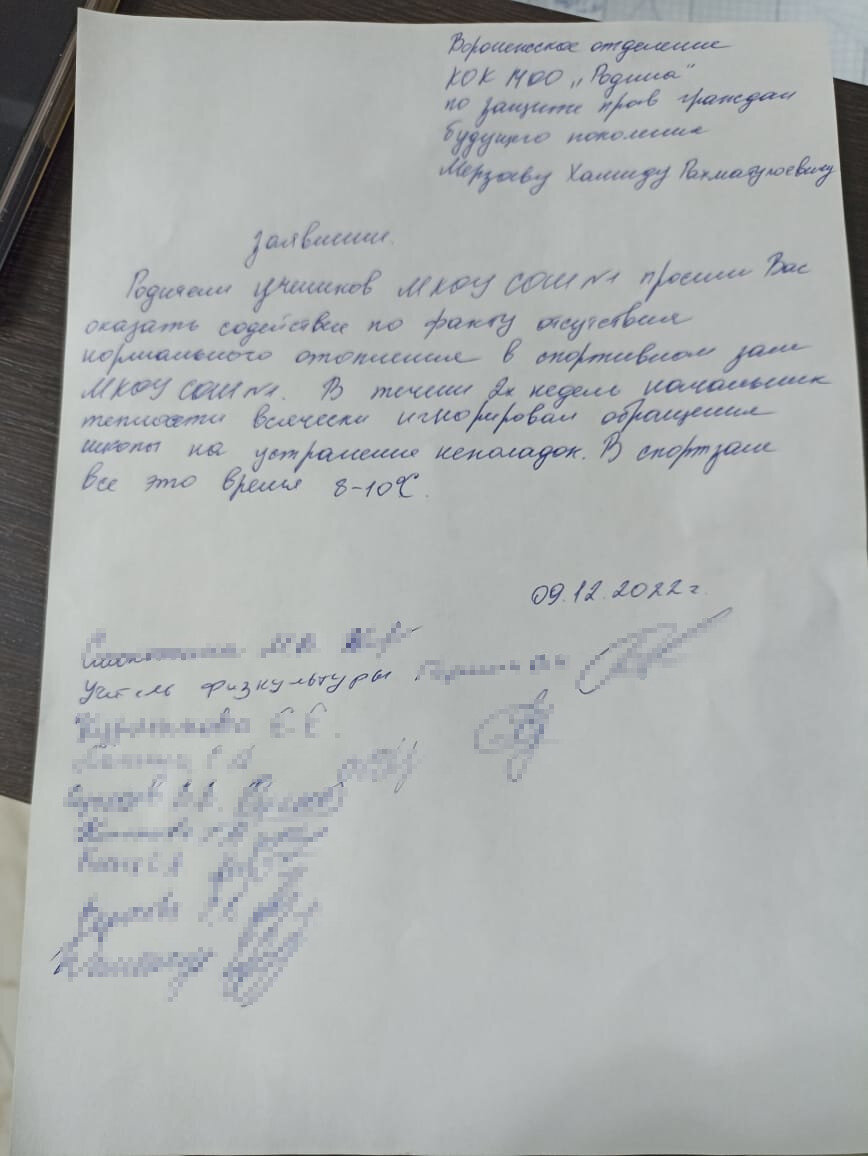 Воронежское отделение
КОК МОО „Родина"
по защите прав граждан
будущего поколения
Мерзоеву Хамиду Рахматулоевичу
Заявление.
Родители учеников МКОУ СОШ №1 просим Вас
оказать содействие по факту отсутствия
нормального отопления в спортивном зале
МКОУ СОШ №1. В течении 2х недель начальник
теплосети всячески игнорировал обращения
школы на устранение неполадок. В спортзале
все это время 8-10°С.
09.12.2022г.
Учитель физкультуры
Е.Е.